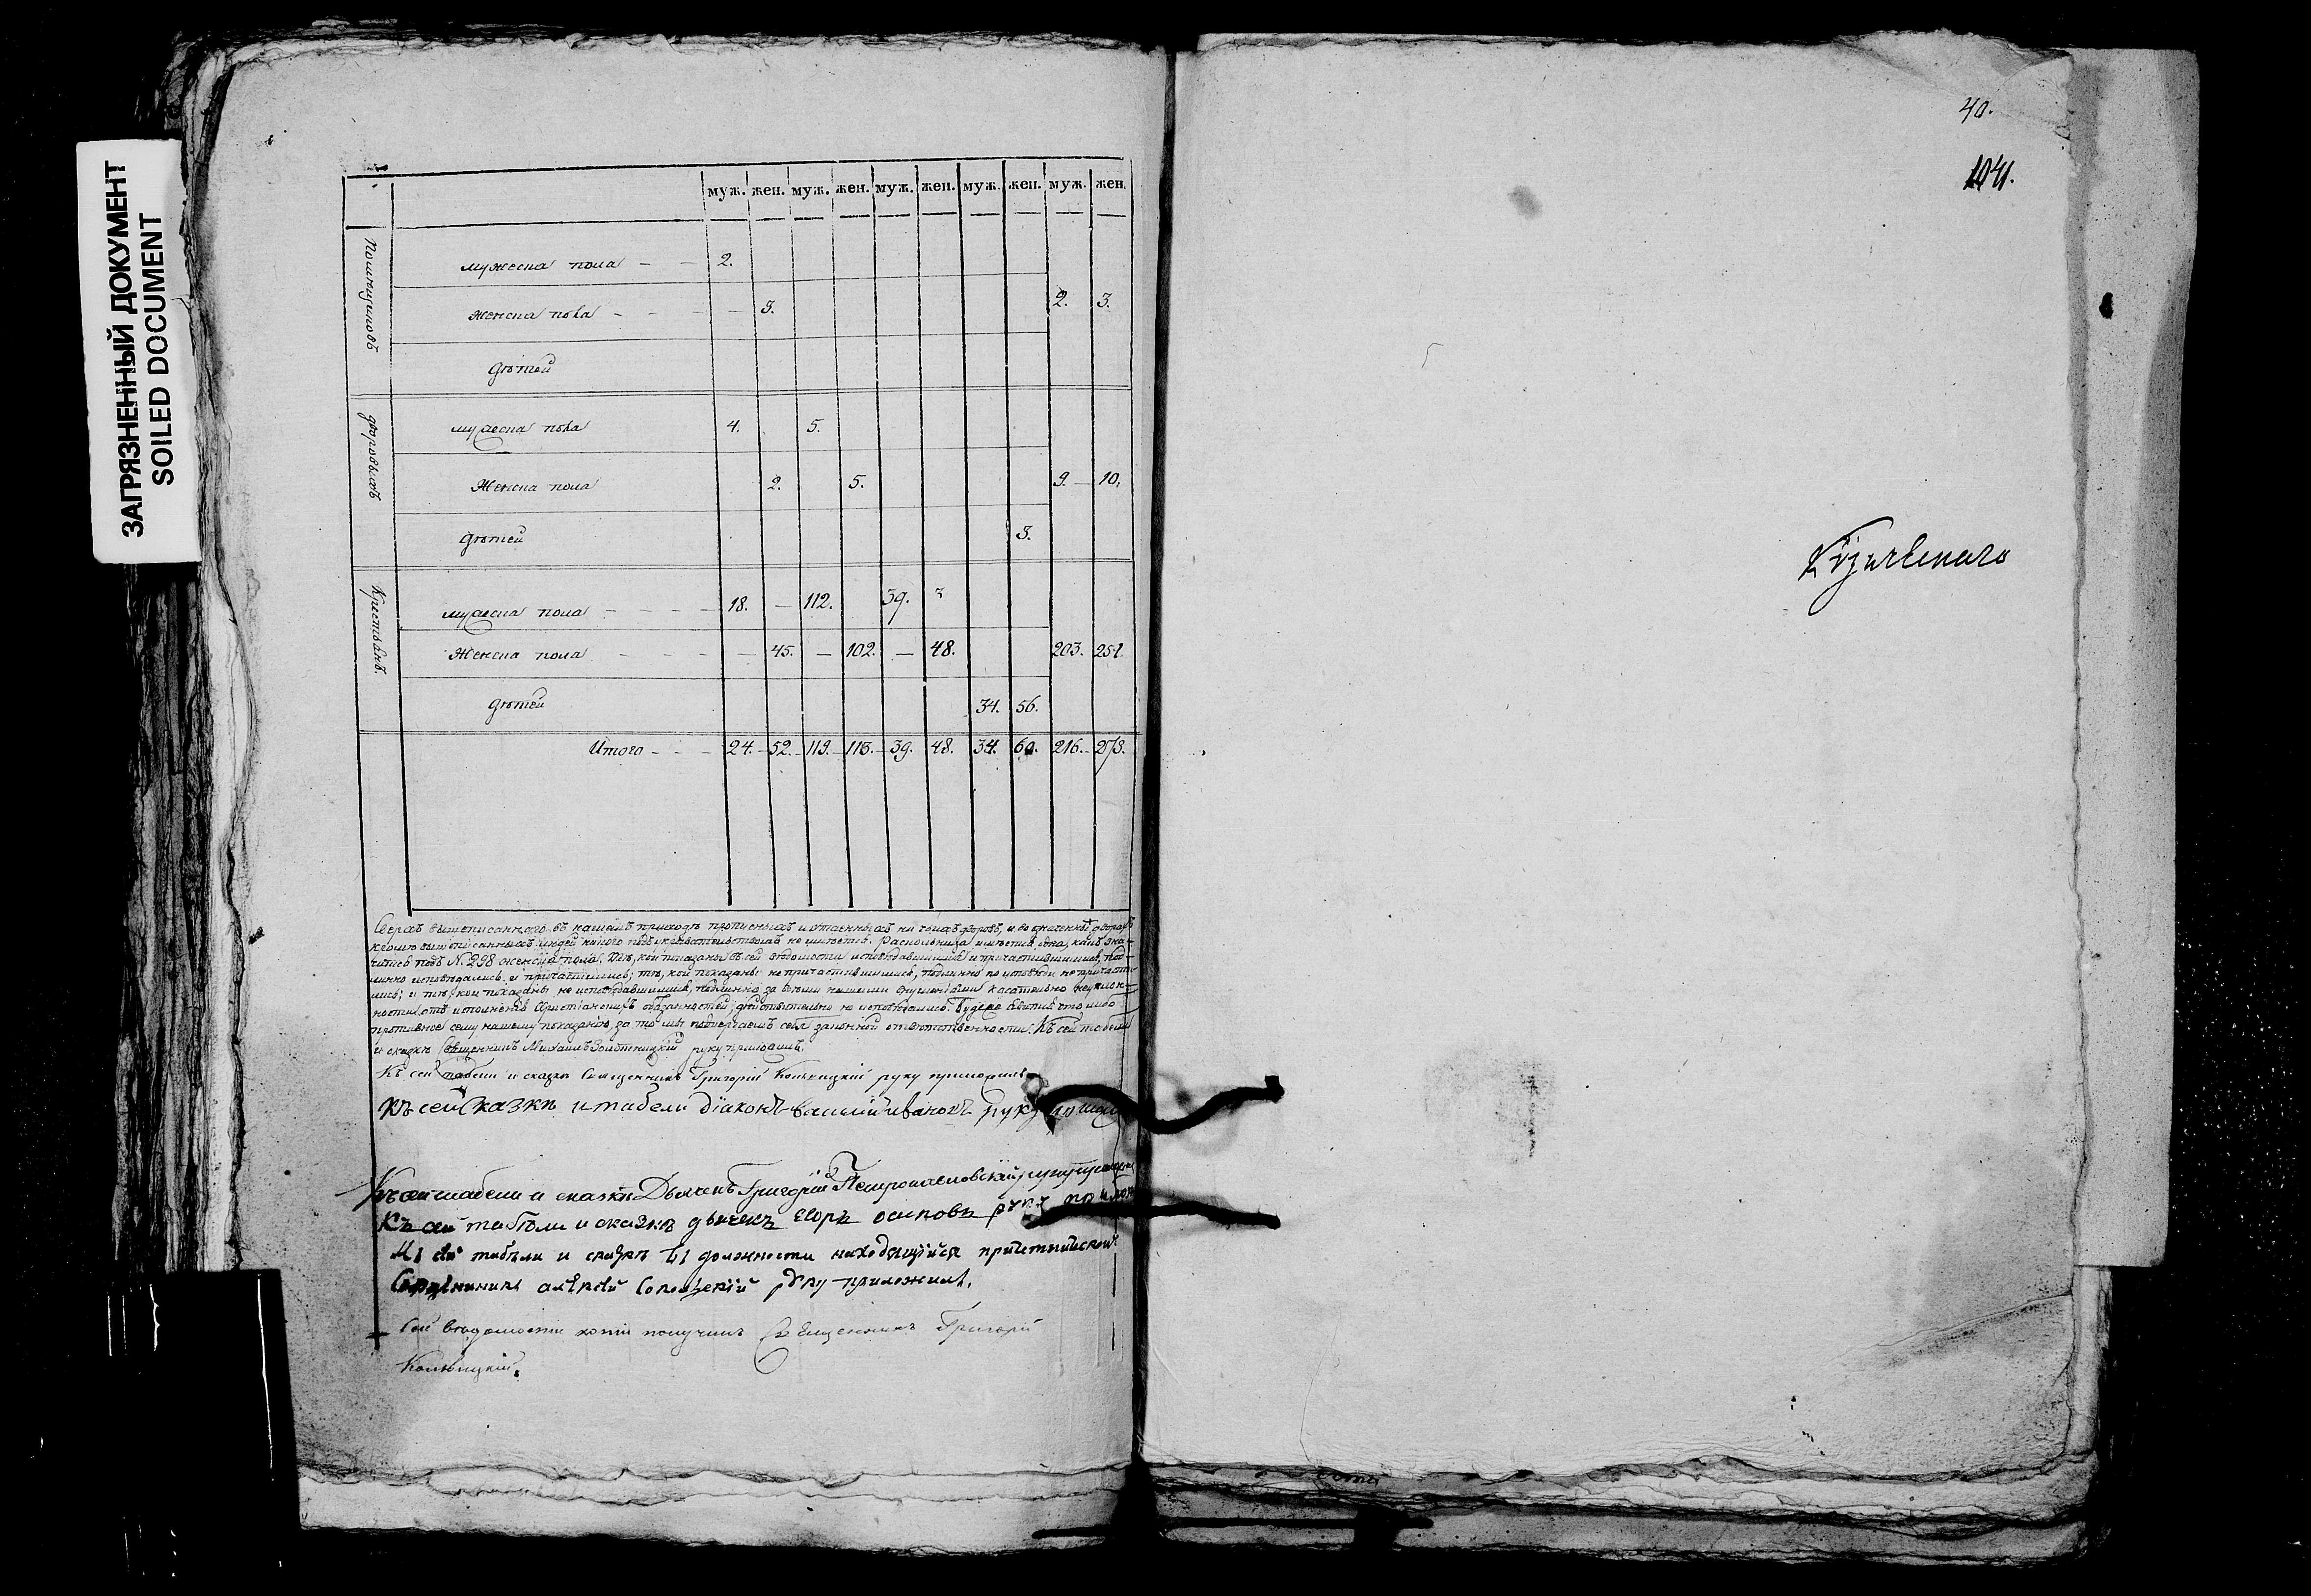 ЗАГРЯЗНЕННЫЙ ДОКУМЕНТ
SOILED DOCUMENT
муж. жен. муж. жен. муж. жен. муж. жен. муж. жен.
Помѣщиковъ
мужеска пола 2.
женска пола 3. 2. 3.
дѣтей
дворовыхъ
мужеска пола 4. 5.
Женска пола 2. 5. 9. 10.
дѣтей 3.
Крестьянъ
мужеска пола 18. 112. 39.
Женска пола 45. 102. 48. 203. 251.
дѣтей 34. 56.
Итого 24. 52. 119. 113. 39. 48. 34. 60. 216. 273.
Сверхъ вышеписаннаго въ нашемъ приходѣ прописныхъ и утаенныхъ ни домахъ, дворѣ, и во означенныхъ дворахъ
кромѣ вышеписанныхъ людей никого
чится подъ N. 298 женска пола. Тѣ, кои показаны въ сей вѣдомости исповѣдавшимися и причастившимися, под-
линно исповѣдались и причастились; тѣ, кои показаны не причастившимися, подлинно по исповѣди не причасти-
лись; и тѣ, кои показаны не исповѣдавшимися, подлинно, за всѣми нашими внушеніями касательно неуклон-
ности отъ исполненія Христіанскихъ обязанностей, дѣйствительно не исповѣдались. Будеже явится что либо
противное сему нашему показанію, за то мы подвергаемъ себя законной отвѣтственности. Къ сей табели
и сказкѣ Священникъ Михаилъ Золотницкій руку приложилъ.
Къ сей табели и сказкѣ Священникъ Григорій руку приложилъ
Къ сей сказкѣ и табели діаконъ василій ивановъ руку
Къ сей табели и сказкѣ Дьячекъ Григорій Петропавловскій руку приложилъ
Къ сей табели и сказкѣ дьячекъ егоръ осиповъ руку приложи
Къ сей табели и сказкѣ въ должности находящійся
алексѣй руку приложилъ.
Сей вѣдомости копію получилъ Священникъ Григорій
40.
1041.